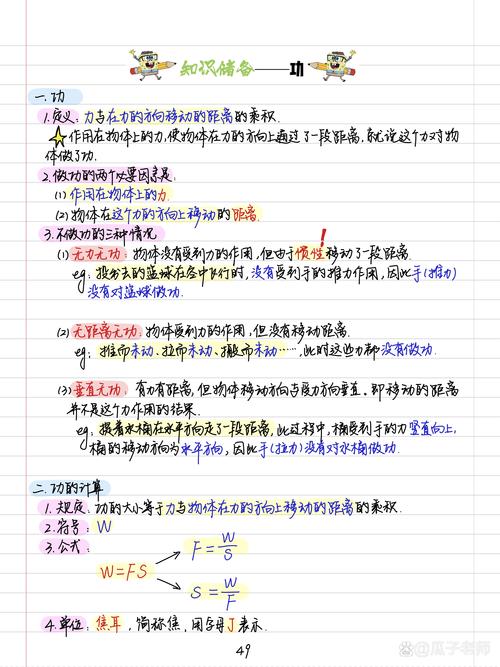 知识储备——功
一.功
1.定义:力与在力的方向移动的距离的乘积.
作用在物体上的力,使物体在力的方向上通过了一段距离,就说这个力对物
体做了功.
2.做功的两个必要因素是:
(1)作用在物体上的力.
(2)物体在这个力的方向上移动的距离.
3.不做功的三种情况
(1)无力无功:物体没有受到力的作用,但由于惯性移动了一段距离.
eg:投出去的篮球在空中飞行时,没有受到手的推力作用,因此手(推力)
没有对篮球做功.
(2)无距离无功:物体受到力的作用,但没有移动距离.
eg:推而未动、拉而未动、搬而未动……,此时这些力都没有做功.
(3)垂直无功:有力有距离,但物体移动方向与受力方向垂直.即移动的距离
并不是这个力作用的结果.
eg:提着水桶在水平方向走了一段距离,此过程中,桶受到手的力竖直向上,
桶的移动方向为水平方向,因此手(拉力)没有对水桶做功.
二.功的计算
1.规定:功的大小等于力与物体在力的方向上移动的距离的乘积.
2.符号:W
3.公式:
F=W/S
W=FS
S=W/F
4.单位:焦耳,简称焦,用字母J表示.
49
Baidu百科@瓜子老师